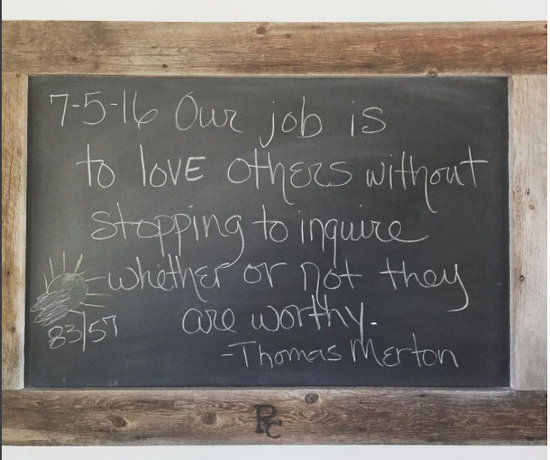 7-5-16 Our job is
to lovE others without
stopping to inquire
whether or not they
are worthy.
83/57
-Thomas Merton
RC